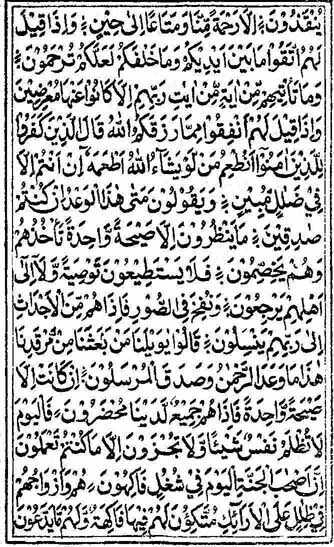 يُنْقَذُوْنَ ۝ اِلَّا رَحْمَةً مِّنَّا وَ مَتَاعًا اِلٰى حِيْنٍ ۝ وَ اِذَا قِيْلَ
لَهُمُ اتَّقُوْا مَا بَيْنَ اَيْدِيْكُمْ وَ مَا خَلْفَكُمْ لَعَلَّكُمْ تُرْحَمُوْنَ ۝
وَ مَا تَاْتِيْهِمْ مِّنْ اٰيَةٍ مِّنْ اٰيٰتِ رَبِّهِمْ اِلَّا كَانُوْا عَنْهَا مُعْرِضِيْنَ
وَ اِذَا قِيْلَ لَهُمْ اَنْفِقُوْا مِمَّا رَزَقَكُمُ اللّٰهُ قَالَ الَّذِيْنَ كَفَرُوْا
لِلَّذِيْنَ اٰمَنُوْۤا اَنُطْعِمُ مَنْ لَّوْ يَشَآءُ اللّٰهُ اَطْعَمَهٗۤ اِنْ اَنْتُمْ اِلَّا
فِيْ ضَلٰلٍ مُّبِيْنٍ ۝ وَ يَقُوْلُوْنَ مَتٰى هٰذَا الْوَعْدُ اِنْ كُنْتُمْ
صٰدِقِيْنَ ۝ مَا يَنْظُرُوْنَ اِلَّا صَيْحَةً وَّاحِدَةً تَاْخُذُهُمْ
وَ هُمْ يَخِصِّمُوْنَ ۝ فَلَا يَسْتَطِيْعُوْنَ تَوْصِيَةً وَّ لَاۤ اِلٰۤى
اَهْلِهِمْ يَرْجِعُوْنَ ۝ وَ نُفِخَ فِي الصُّوْرِ فَاِذَا هُمْ مِّنَ الْاَجْدَاثِ
اِلٰى رَبِّهِمْ يَنْسِلُوْنَ ۝ قَالُوْا يٰوَيْلَنَا مَنْۢ بَعَثَنَا مِنْ مَّرْقَدِنَا
هٰذَا مَا وَعَدَ الرَّحْمٰنُ وَ صَدَقَ الْمُرْسَلُوْنَ ۝ اِنْ كَانَتْ اِلَّا
صَيْحَةً وَّاحِدَةً فَاِذَا هُمْ جَمِيْعٌ لَّدَيْنَا مُحْضَرُوْنَ ۝ فَالْيَوْمَ
لَا تُظْلَمُ نَفْسٌ شَيْـًٔا وَّ لَا تُجْزَوْنَ اِلَّا مَا كُنْتُمْ تَعْمَلُوْنَ
اِنَّ اَصْحٰبَ الْجَنَّةِ الْيَوْمَ فِيْ شُغُلٍ فٰكِهُوْنَ ۝ هُمْ وَ اَزْوَاجُهُمْ
فِيْ ظِلٰلٍ عَلَى الْاَرَآىِٕكِ مُتَّكِـُٔوْنَ لَهُمْ فِيْهَا فَاكِهَةٌ وَّ لَهُمْ مَّا يَدَّعُوْنَ